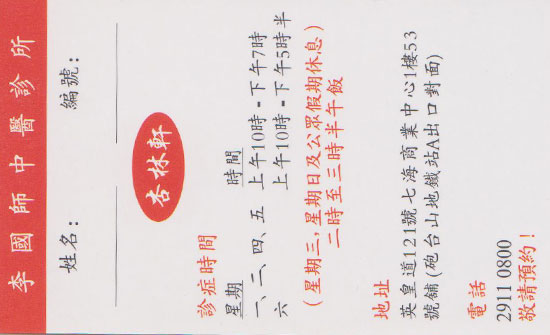 李國師中醫診所
姓名：　編號：
杏林軒
診症時間
星期　時間
一、二、四、五　上午10時－下午7時
六　上午10時－下午5時半
（星期三，星期日及公眾假期休息）
二時至三時半午飯
地址
英皇道121號七海商業中心1樓53
號舖(砲台山地鐵站A出口對面)
電話
2911 0800
敬請預約！